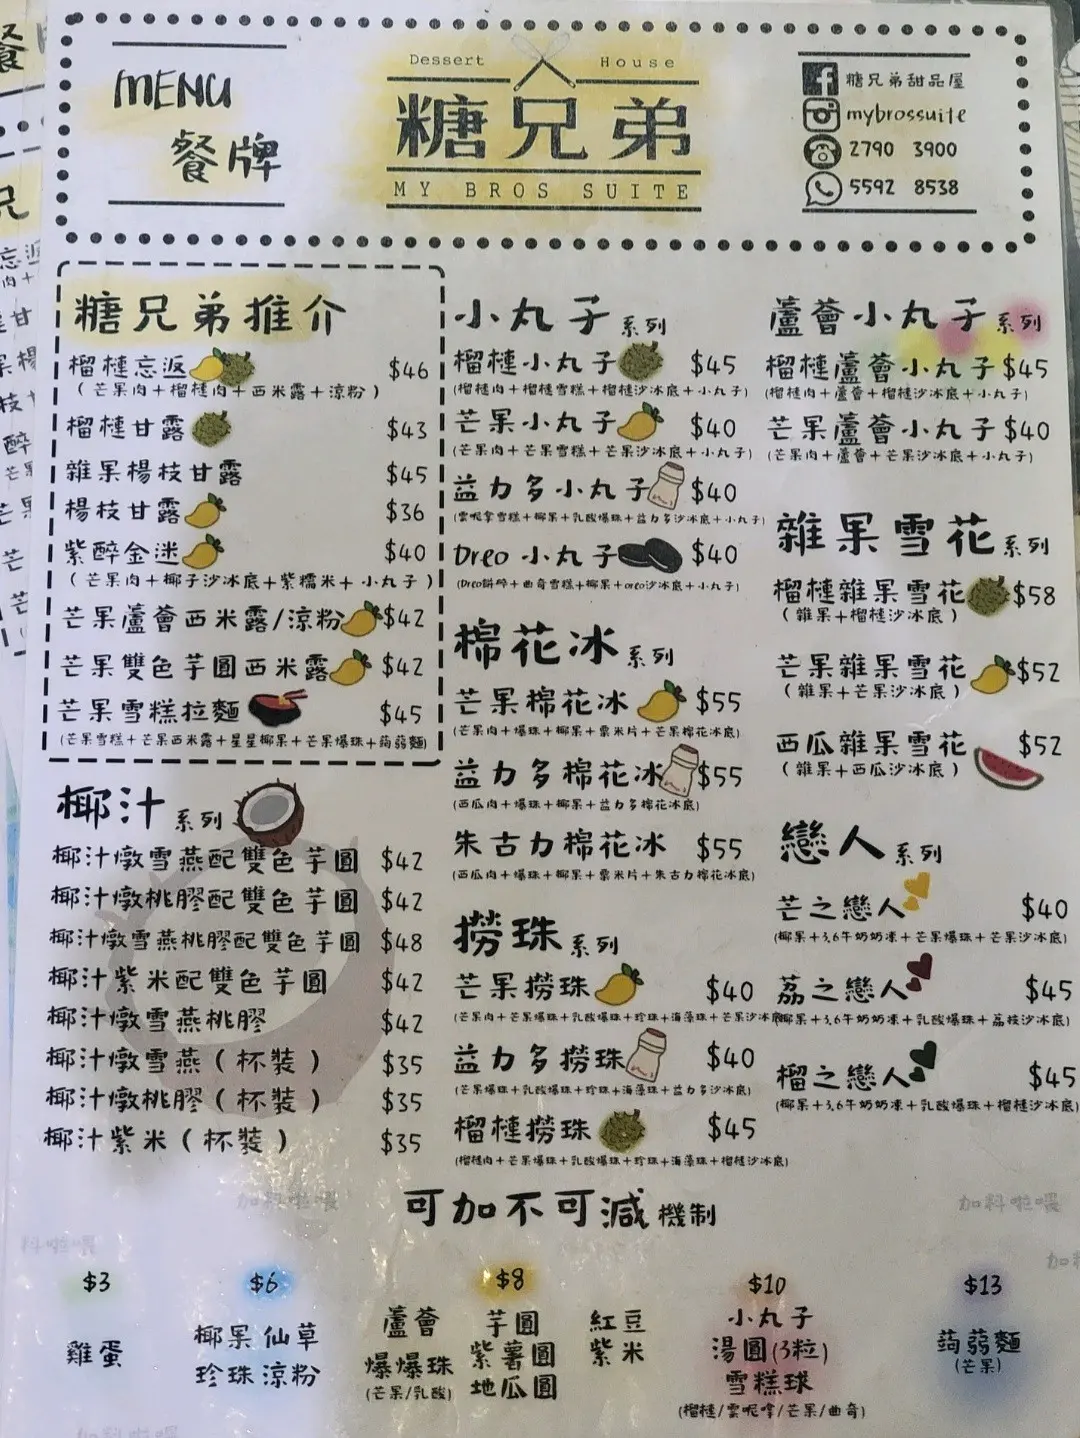 MENU
餐牌
Dessert House
糖兄弟
MY BROS SUITE
糖兄弟甜品屋
mybrossuite
2790 3900
5592 8538
糖兄弟推介
榴槤忘返 $46
(芒果肉+榴槤肉+西米露+涼粉)
榴槤甘露 $43
雜果楊枝甘露 $45
楊枝甘露 $36
紫醉金迷 $40
(芒果肉+椰子沙冰底+紫糯米+小丸子)
芒果蘆薈西米露/涼粉 $42
芒果雙色芋圓西米露 $42
芒果雪糕拉麵 $45
(芒果雪糕+芒果西米露+星星椰果+芒果爆珠+蒟蒻麵)
椰汁系列
椰汁燉雪燕配雙色芋圓 $42
椰汁燉桃膠配雙色芋圓 $42
椰汁燉雪燕桃膠配雙色芋圓 $48
椰汁紫米配雙色芋圓 $42
椰汁燉雪燕桃膠 $42
椰汁燉雪燕(杯裝) $35
椰汁燉桃膠(杯裝) $35
椰汁紫米(杯裝) $35
小丸子系列
榴槤小丸子 $45
(榴槤肉+榴槤雪糕+榴槤沙冰底+小丸子)
芒果小丸子 $40
(芒果肉+芒果雪糕+芒果沙冰底+小丸子)
益力多小丸子 $40
(雲呢拿雪糕+椰果+乳酸爆珠+益力多沙冰底+小丸子)
Oreo 小丸子 $40
(Oreo餅碎+曲奇雪糕+椰果+oreo沙冰底+小丸子)
棉花冰系列
芒果棉花冰 $55
(芒果肉+爆珠+椰果+粟米片+芒果棉花冰底)
益力多棉花冰 $55
(西瓜肉+爆珠+椰果+益力多棉花冰底)
朱古力棉花冰 $55
(西瓜肉+爆珠+椰果+粟米片+朱古力棉花冰底)
撈珠系列
芒果撈珠 $40
(芒果肉+芒果爆珠+乳酸爆珠+珍珠+海藻珠+芒果沙冰底)
益力多撈珠 $40
(芒果爆珠+乳酸爆珠+珍珠+海藻珠+益力多沙冰底)
榴槤撈珠 $45
(榴槤肉+芒果爆珠+乳酸爆珠+珍珠+海藻珠+榴槤沙冰底)
蘆薈小丸子系列
榴槤蘆薈小丸子 $45
(榴槤肉+蘆薈+榴槤沙冰底+小丸子)
芒果蘆薈小丸子 $40
(芒果肉+蘆薈+芒果沙冰底+小丸子)
雜果雪花系列
榴槤雜果雪花 $58
(雜果+榴槤沙冰底)
芒果雜果雪花 $52
(雜果+芒果沙冰底)
西瓜雜果雪花 $52
(雜果+西瓜沙冰底)
戀人系列
芒之戀人 $40
(椰果+3.6牛奶奶凍+芒果爆珠+芒果沙冰底)
荔之戀人 $45
椰果+3.6牛奶奶凍+乳酸爆珠+荔枝沙冰底)
榴之戀人 $45
(椰果+3.6牛奶奶凍+乳酸爆珠+榴槤沙冰底)
可加不可減機制
加料啦喂
加料啦喂
料啦喂
$3
雞蛋
$6
椰果 仙草
珍珠 涼粉
$8
蘆薈 芋圓 紅豆
爆爆珠 紫薯圓 紫米
(芒果/乳酸) 地瓜圓
$10
小丸子
湯圓(3粒)
雪糕球
(榴槤/雲呢拿/芒果/曲奇)
$13
蒟蒻麵
(芒果)
加料啦喂